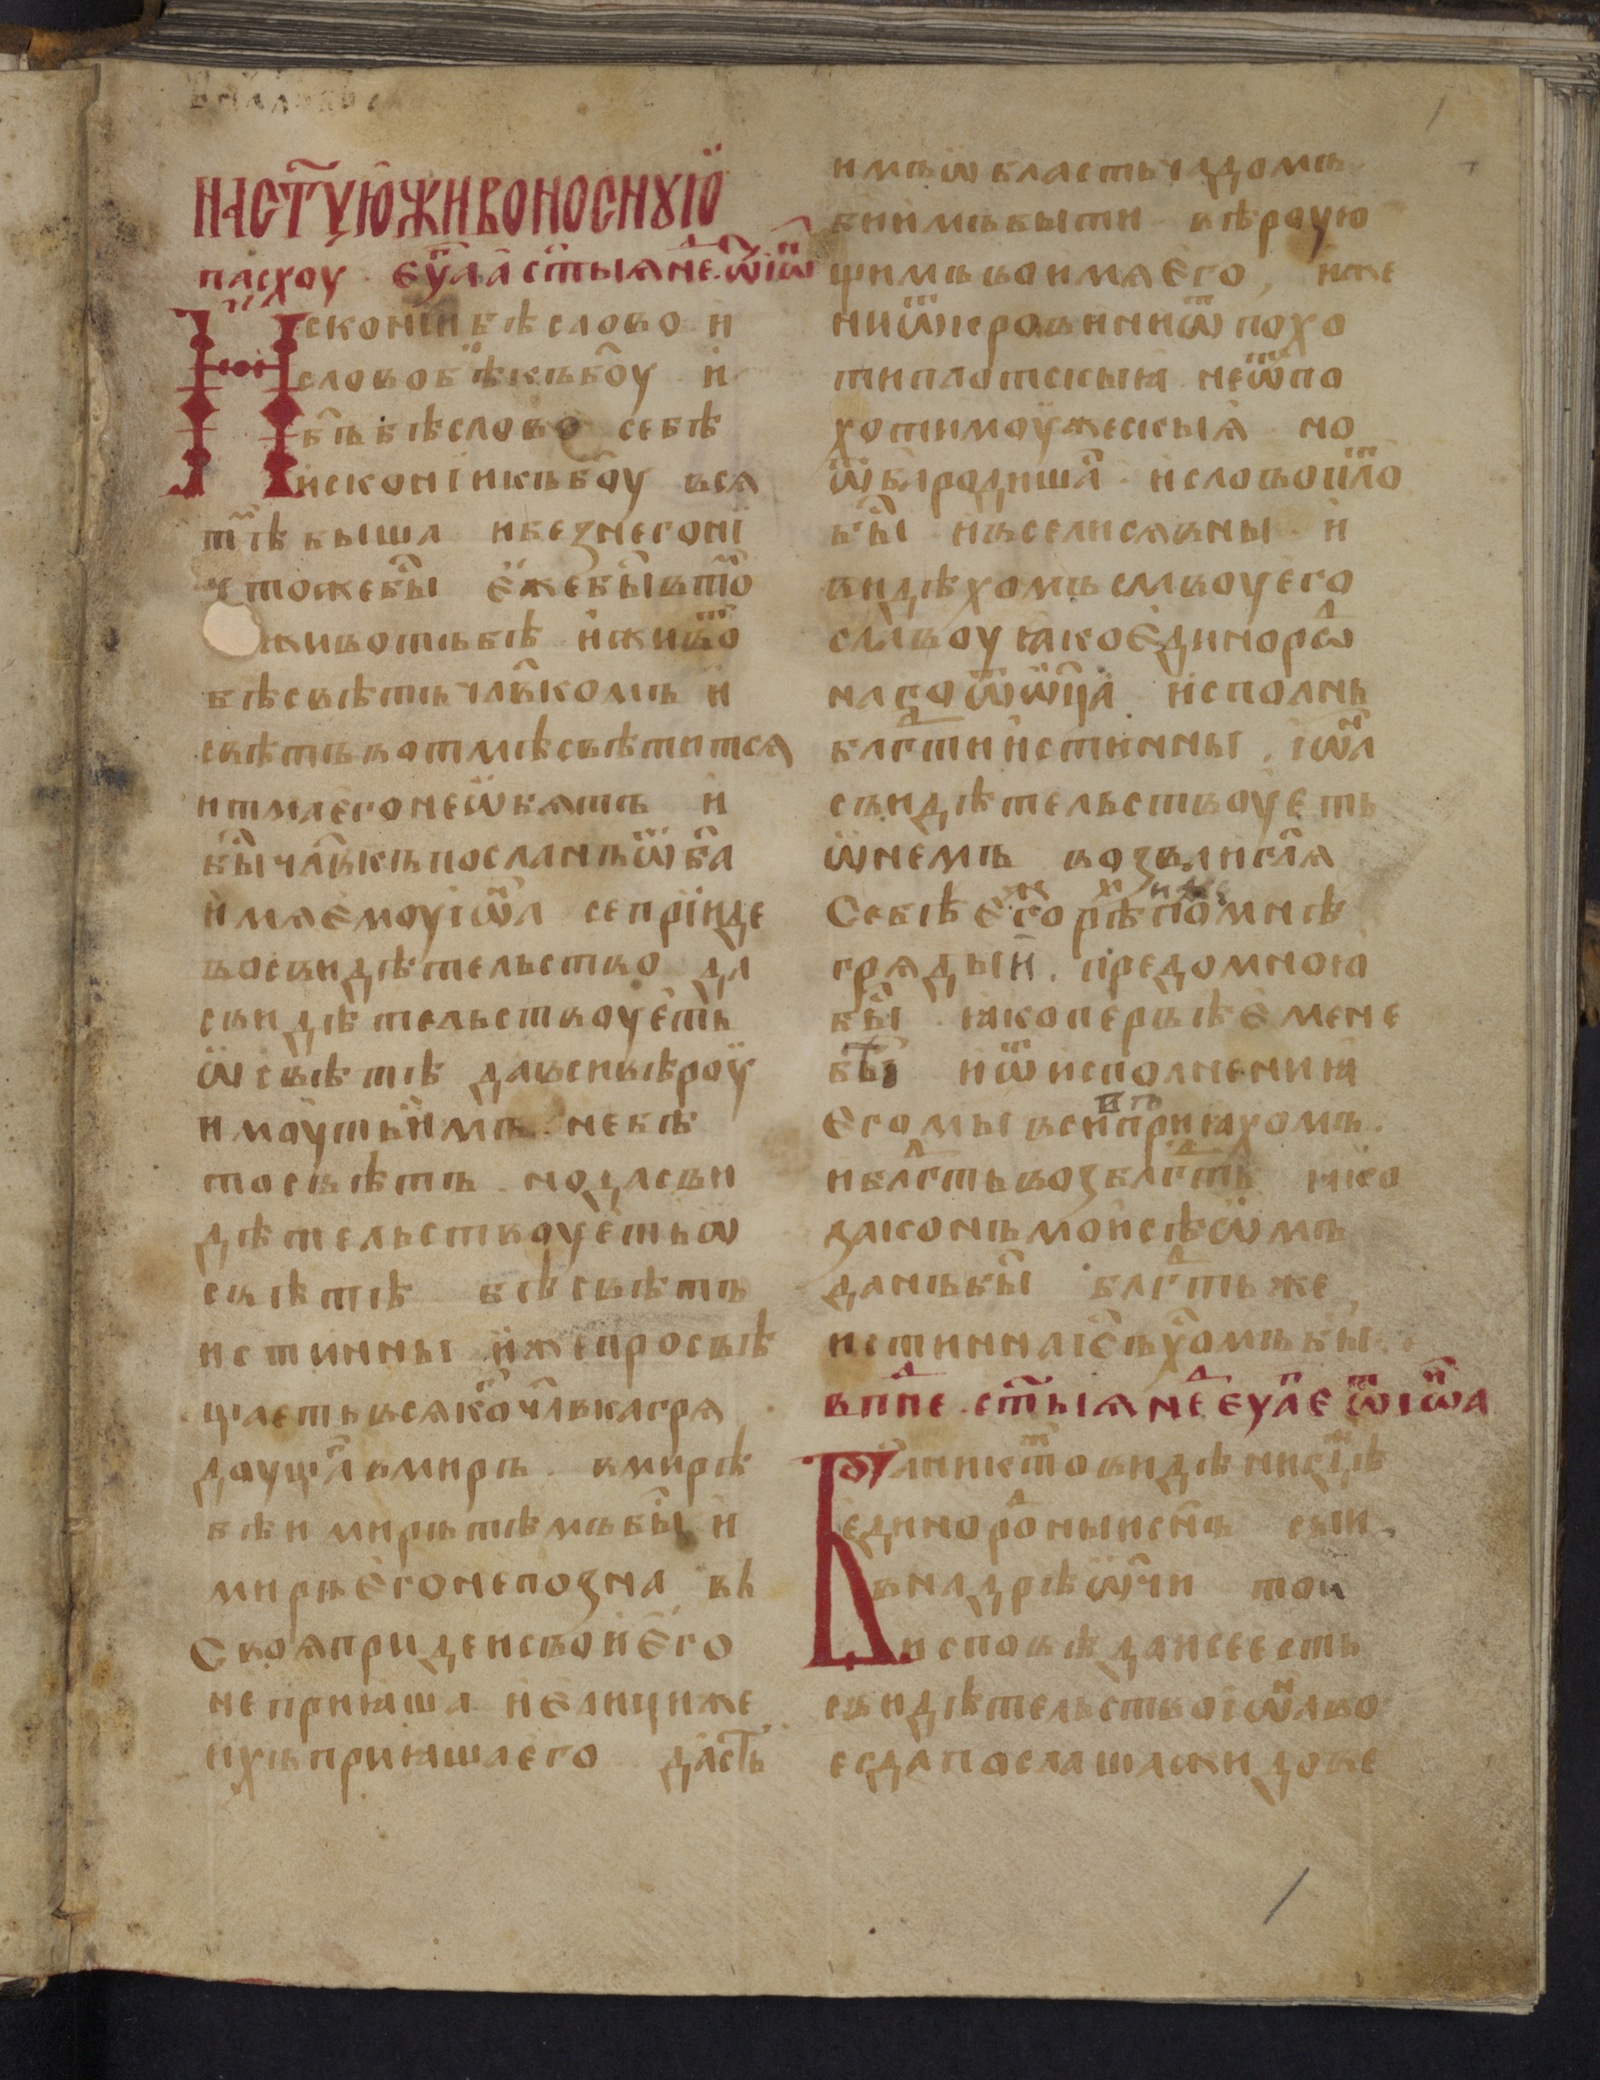 НАСТ҃УЮЖИВОНОСНУЮ
пасхоу · еу҃ла с҃тыѧ не҃ ѿ іѡ҃
Искони бѣ слово и
слово бѣ къ бо҃у и
б҃ъ бѣ слово се бѣ
искони къ бо҃у всѧ
тѣ҃ быша и без него ни
чтоже бы҃ еже бы҃ в то҃
животъ бѣ и живо҃
бѣ свѣтъ чл҃вкомъ и
свѣтъ во тмѣ свѣтитсѧ
и тма его не ѡбѧтъ и
бы҃ чл҃вкъ посланъ ѿ б҃а
имѧ емоу іѡ҃а се прїиде
во свидѣтельство да
свидѣтельствоуеть
ѡ свѣтѣ да вси вѣроу
имоуть имъ не бѣ
то свѣтъ но да сви
дѣтельствоуеть ѡ
свѣтѣ бѣ свѣтъ
истинны иже просвѣ
щаеть всѧко҃ чл҃вка грѧ
доуща҃ в миръ в мирѣ
бѣ и миръ тѣмъ бы҃ и
миръ его не позна въ
своѧ приде и свои его
не приꙗша и елици же
ихъ приꙗша его дасть
имъ ѡбласть чадомъ
б҃иимъ быти вѣроую
щимъ во имѧ его, иже
ни ѿ крови ни ѿ похо
ти плотскыꙗ не ѿ по
хоти моужескыѧ но
ѿ б҃а родиша҃ и слово пло҃
бы҃ и вселисѧ в ны и
видѣхомъ славоу его
славоу ꙗко единоро҃
наго ѿ ѡц҃а исполнь
блг҃ти и истинны . іѡ҃а
свидѣтельствоуеть
ѡ немъ возва и гл҃ѧ
Се бѣ его рѣ҃ по мнѣ
грѧдыи . предомною
бы҃ ꙗко первѣе мене
бы҃ и ѿ исполнениꙗ
его мы вси приꙗхомъ .
и блг҃ть воз блг҃ть ꙗко
законъ моисѣѡмъ
данъ бы҃ блг҃ть же
истинна іс҃ъ х҃омъ бы҃ .
в п҃не с҃тыѧ не҃ еу҃ле ѿ іѡ҃а
Б҃а никто҃ видѣ нигдѣ҃
единоро҃ныи с҃нъ сыи .
в надрѣ ѡ҃чи тои
исповѣда и се есть
свидѣтельство іѡ҃аво
егда послаша жидове